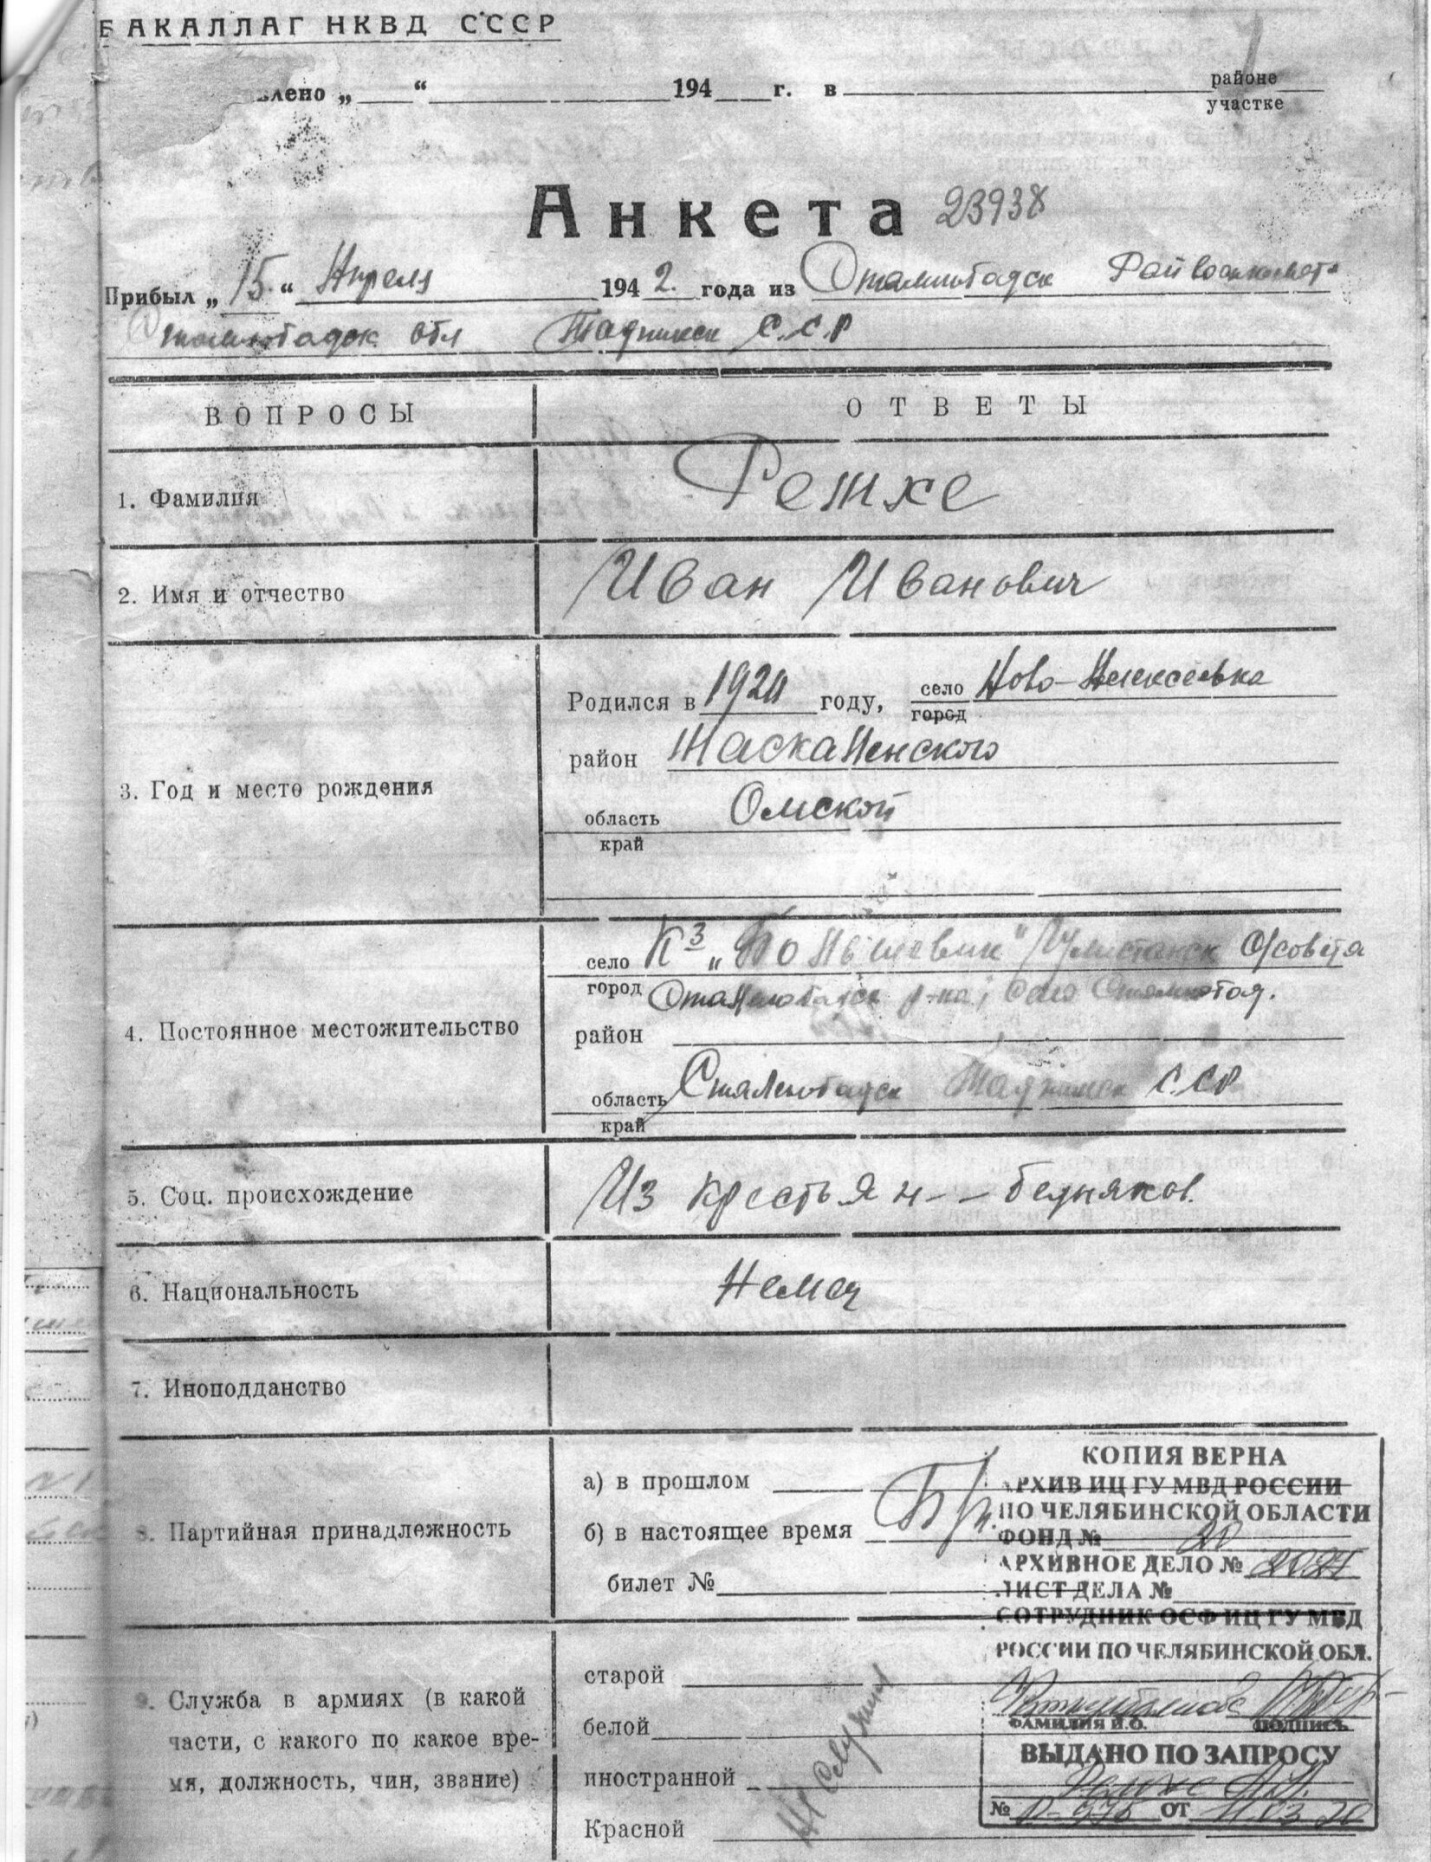 БАКАЛЛАГ НКВД СССР
влено „ “ 194 г. в районе
участке
Анкета 23938
Прибыл „15“ Апреля 1942. года из Сталинбадск Райвоенкомат
Сталинбадск обл Таджикск С.С.Р
ВОПРОСЫ ОТВЕТЫ
1. Фамилия Ретхе
2. Имя и отчество Иван Иванович
3. Год и место рождения
Родился в году, село Ново-Алексеевка
город
район
область Омской
край
4. Постоянное местожительство
село К-з „Большевик“ С/совета
город Сталинобадск р-на,
район
область Сталинобадск Таджикск С.С.Р
край
5. Соц. происхождение Из крестьян -- бедняков.
6. Национальность Немец
7. Иноподданство
8. Партийная принадлежность
а) в прошлом
б) в настоящее время Б/п.
билет №
9. Служба в армиях (в какой
части, с какого по какое вре-
мя, должность, чин, звание)
старой
белой
иностранной
Красной
Не служил
КОПИЯ ВЕРНА
АРХИВ ИЦ ГУ МВД РОССИИ
ПО ЧЕЛЯБИНСКОЙ ОБЛАСТИ
ФОНД № 20
АРХИВНОЕ ДЕЛО №
ЛИСТ ДЕЛА №
СОТРУДНИК ОСФ ИЦ ГУ МВД
РОССИИ ПО ЧЕЛЯБИНСКОЙ ОБЛ.
ФАМИЛИЯ И.О. ПОДПИСЬ
ВЫДАНО ПО ЗАПРОСУ
№ ОТ 11.03.20